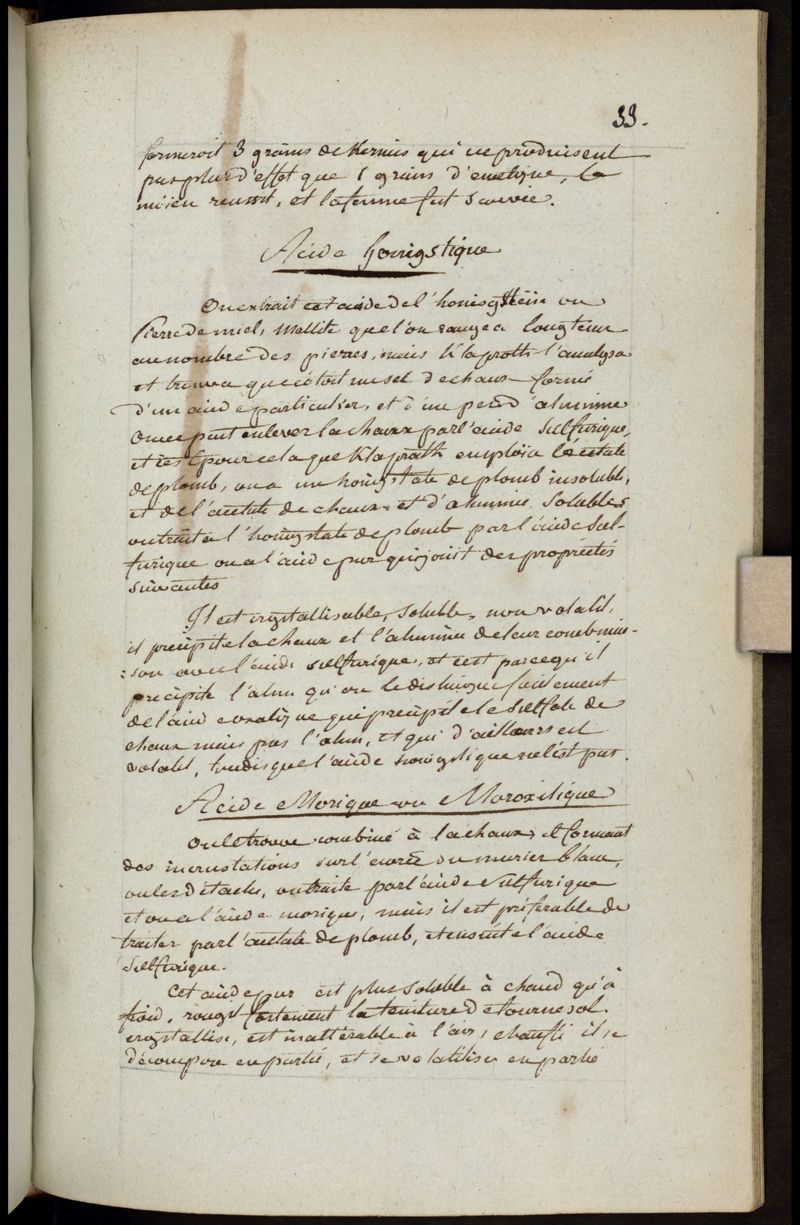 33.
formeroit 3 grains de Kermès qui ne produisent
pas plus d'effet que 1 grains d'emetique, le
mien reussit, et la femme fut sauvée.
Acide honigstique
On extrait cet acide de l'honigstein ou
Pierre de miel, Mellite que l'on rangea longtems
au nombre des pierres, mais Klaproth l'analysa
et trouva que c'étoit un sel de chaux formé
d'un acide particulier, et d'un peu d'alumine
On ne peut enlever la chaux par l'acide sulfurique,
et c'est pour cela que Klaproth emploïa l'acétate
de plomb, on a un honigstate de plomb insoluble,
et de l'acétate de chaux et d'alumine solubles
on traite l'honigstate de plomb par l'acide sul-
furique on a l'acide pur qui jouit des propriétés
suivantes
Il est crystallisable, soluble, non volatil,
il précipite la chaux et l'alumine de leur combinai-
:son avec l'acide sulfurique, et c'est parcequ'il
précipite l'alun qu'on le distingue facilement
de l'acide oxalique qui précipite le sulfate de
chaux mais pas l'alun, et qui d'ailleurs est
volatil, tandis que l'acide honigstique ne l'est pas.
Acide Morique ou Moroxilique
On le trouve combiné à la chaux, et formant
des incrustations sur l'écorce du murier blanc,
on les détache, on traite par l'acide sulfurique
et on a l'acide morique, mais il est préférable de
traiter par l'acétate de plomb, et ensuite l'acide
sulfurique.
Cet acide pur est plus soluble à chaud qu'à
froid, rougit fortement la teinture de tournesol.
crystallise, est inaltérable à l'air, chauffé il se
décompose en partie, et se volatilise en partie